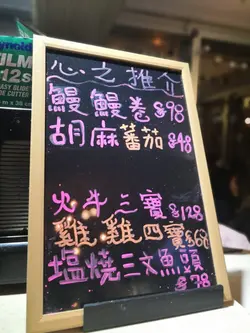 心之推介
鰻鰻卷$98
胡麻蕃茄$48
火牛三寶$128
雞雞四寶$68
塩燒三文魚頭
$78